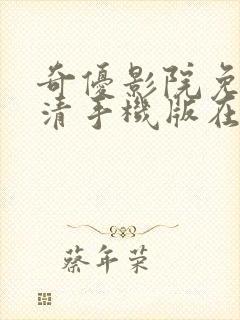 奇優影院免
清手機版在
蔡年荣